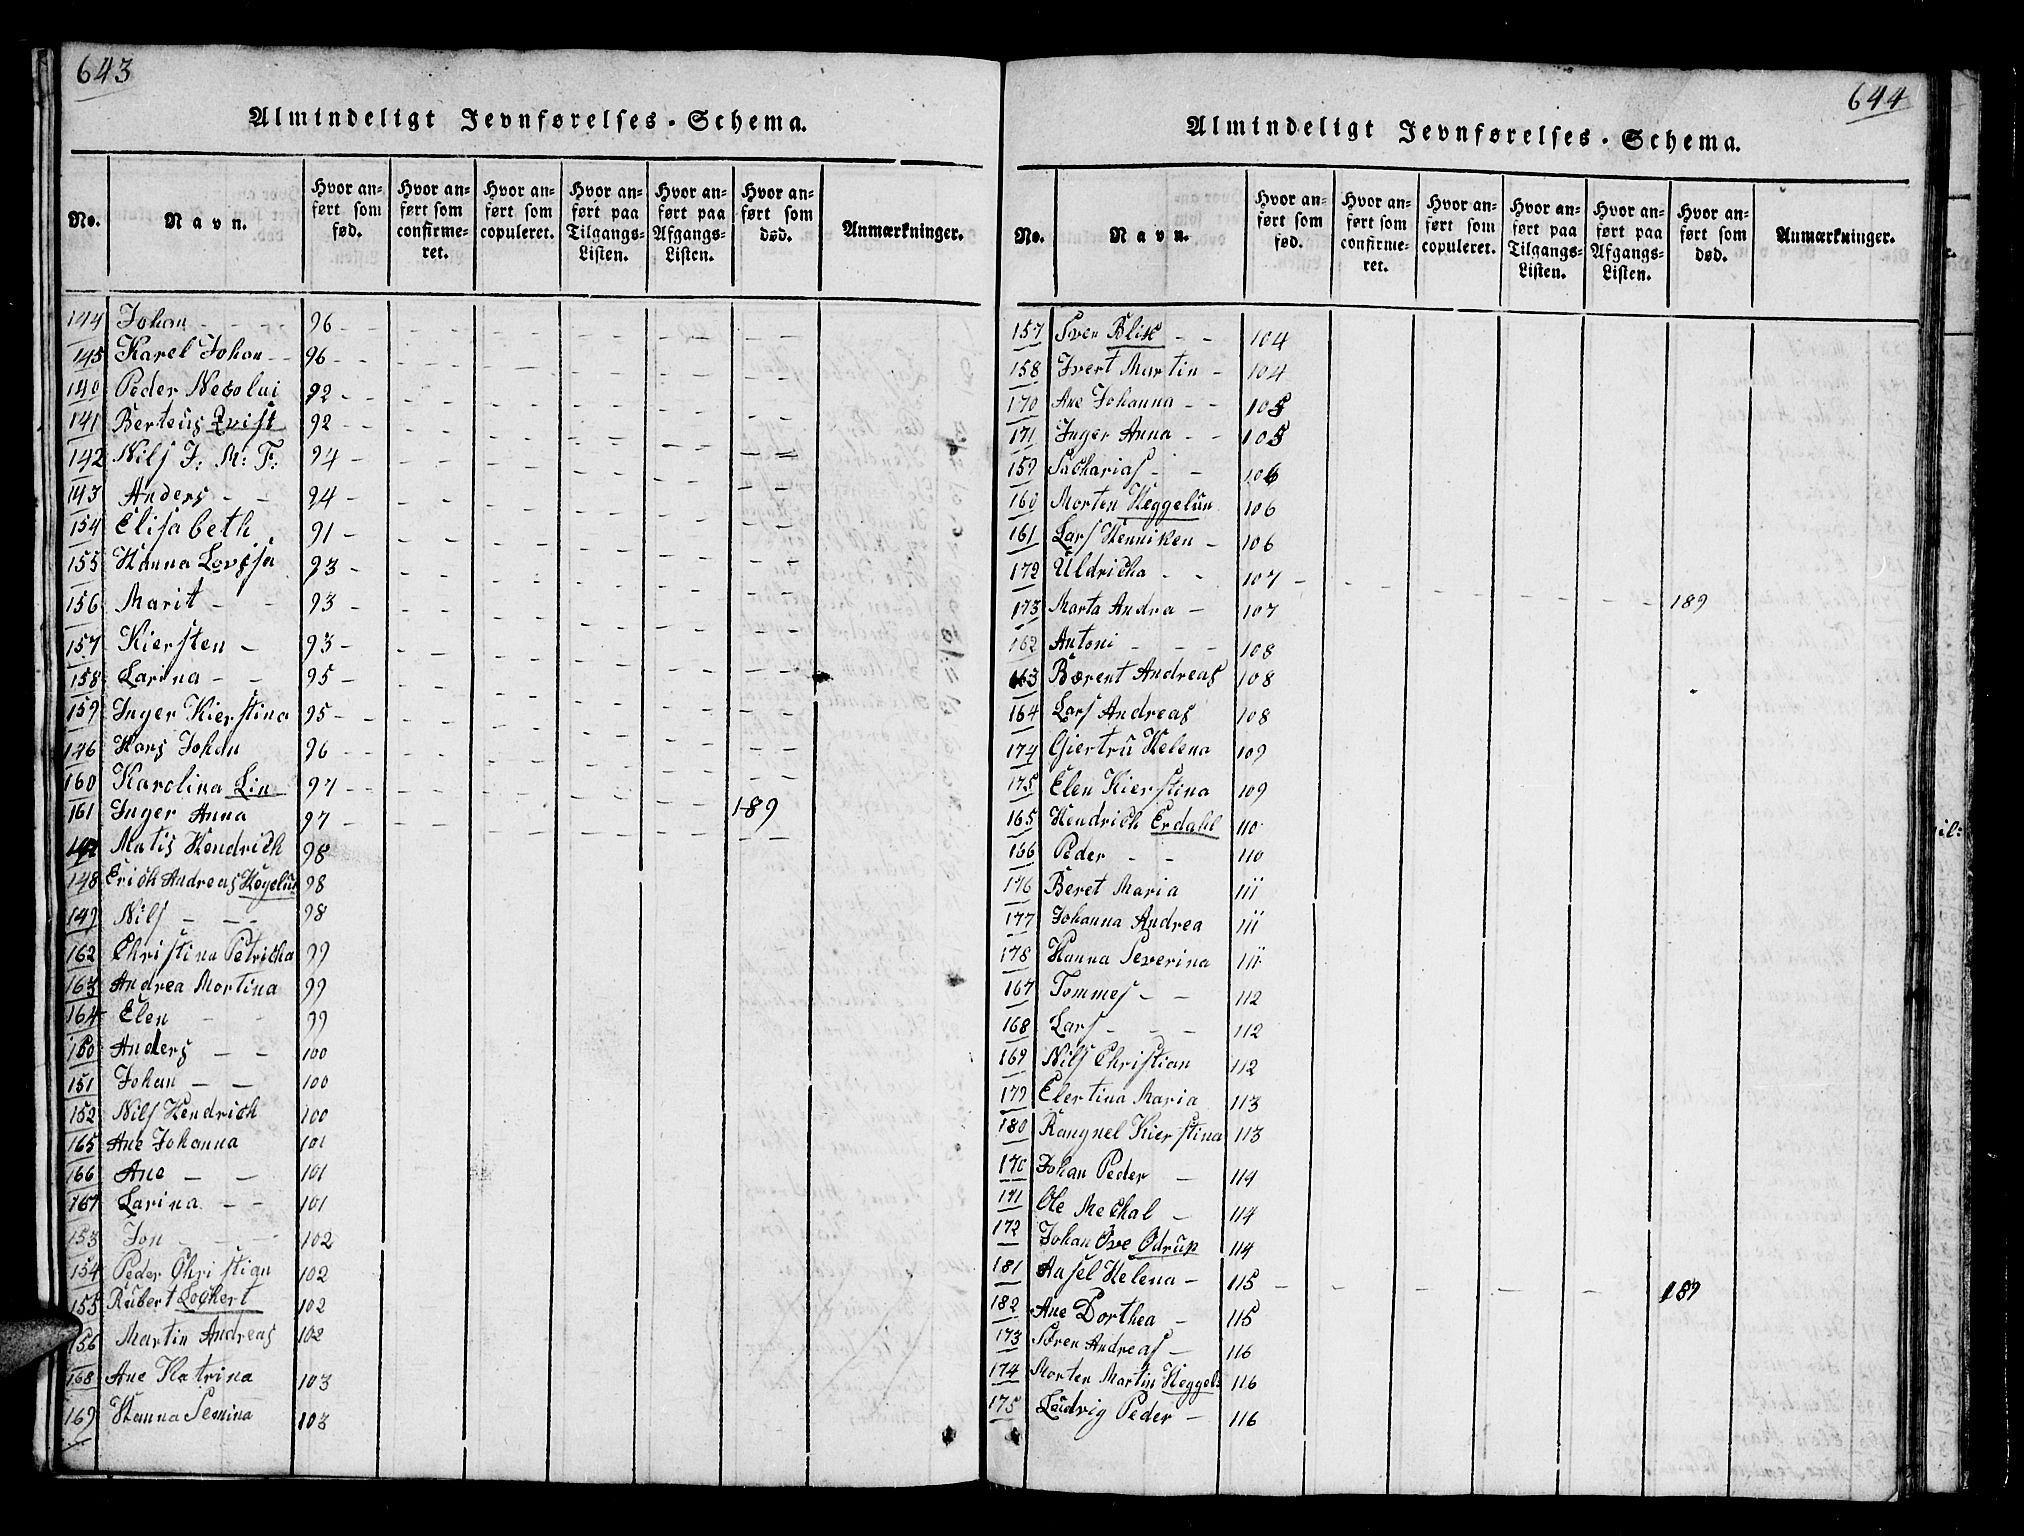 643
Almindeligt Jevnførelses-Schema.
No. Navn. Hvor anført som fød. Hvor anført som confirmeret. Hvor anført som copuleret. Hvor anført paa Tilgangs-Listen. Hvor anført paa Afgangs-Listen. Hvor anført som død. Anmærkninger.
144 Johan - - - 96 -
145 Karel Johan - - 96 -
140 Peder Necolai 92 -
141 Berteus Qvist 92 -
142 Nils J: M: F: 94 -
143 Anders - - 94 -
154 Elisabeth 91 -
155 Hanna Lovssa 93 -
156 Marit - - 93 -
157 Kiersten - 93 -
158 Larina - - 95 -
159 Inger Kierstina 95 -
146 Hans Johan 96 -
160 Karolina Lin 97 -
161 Inger Anna 97 - 189
147 Matis Hendrich 98
148 Erich Andreas Hegelun 98
149 Nils - - - 98
162 Christina Petricha 99
163 Andrea Mortina 99
164 Elen - - 99
150 Anders - - 100
151 Johan - - 100
152 Nils Hendrich 100
165 Ane Johanna 101
166 Ane - - 101
167 Larina - - 101
153 Jon - - - 102
154 Peder Christian 102
155 Rubert Lockert 102
156 Martin Andreas 102
168 Ane Katrina 103
169 Hanna Semina 103
644
Almindeligt Jevnførelses-Schema.
No. Navn. Hvor anført som fød. Hvor anført som confirmeret. Hvor anført som copuleret. Hvor anført paa Tilgangs-Listen. Hvor anført paa Afgangs-Listen. Hvor anført som død. Anmærkninger.
157 Sven Blix - - 104
158 Ivert Martin - 104
170 Ane Johanna - - 105
171 Inger Anna - - 105
159 Sacharias - - 106
160 Morten Heggelun 106
161 Lars Henniken - 106
172 Uldricha - - 107 -
173 Marta Andra - 107 189
162 Antoni - - - 108
163 Bærent Andreas 108
164 Lars Andreas 108
174 Giertru Helena 109
175 Elen Kierstina 109
165 Hendrich Erdahl 110
166 Peder - - 110
176 Beret Maria 111
177 Johanna Andrea 111
178 Hanna Severina 111
167 Tommes - - 112
168 Lars - - - 112
169 Nils Christian 112
179 Elertina Maria 113
180 Rangnel Kierstina 113
170 Johan Peder - 114
171 Ole Mechal - 114
172 Johan Ove Odrup 114
181 Aasel Helena - 115 - 189
182 Ane Dorthea - 115
173 Søren Andreas - 116
174 Morten Martin Heggel: 116
175 Ludvig Peder - 116